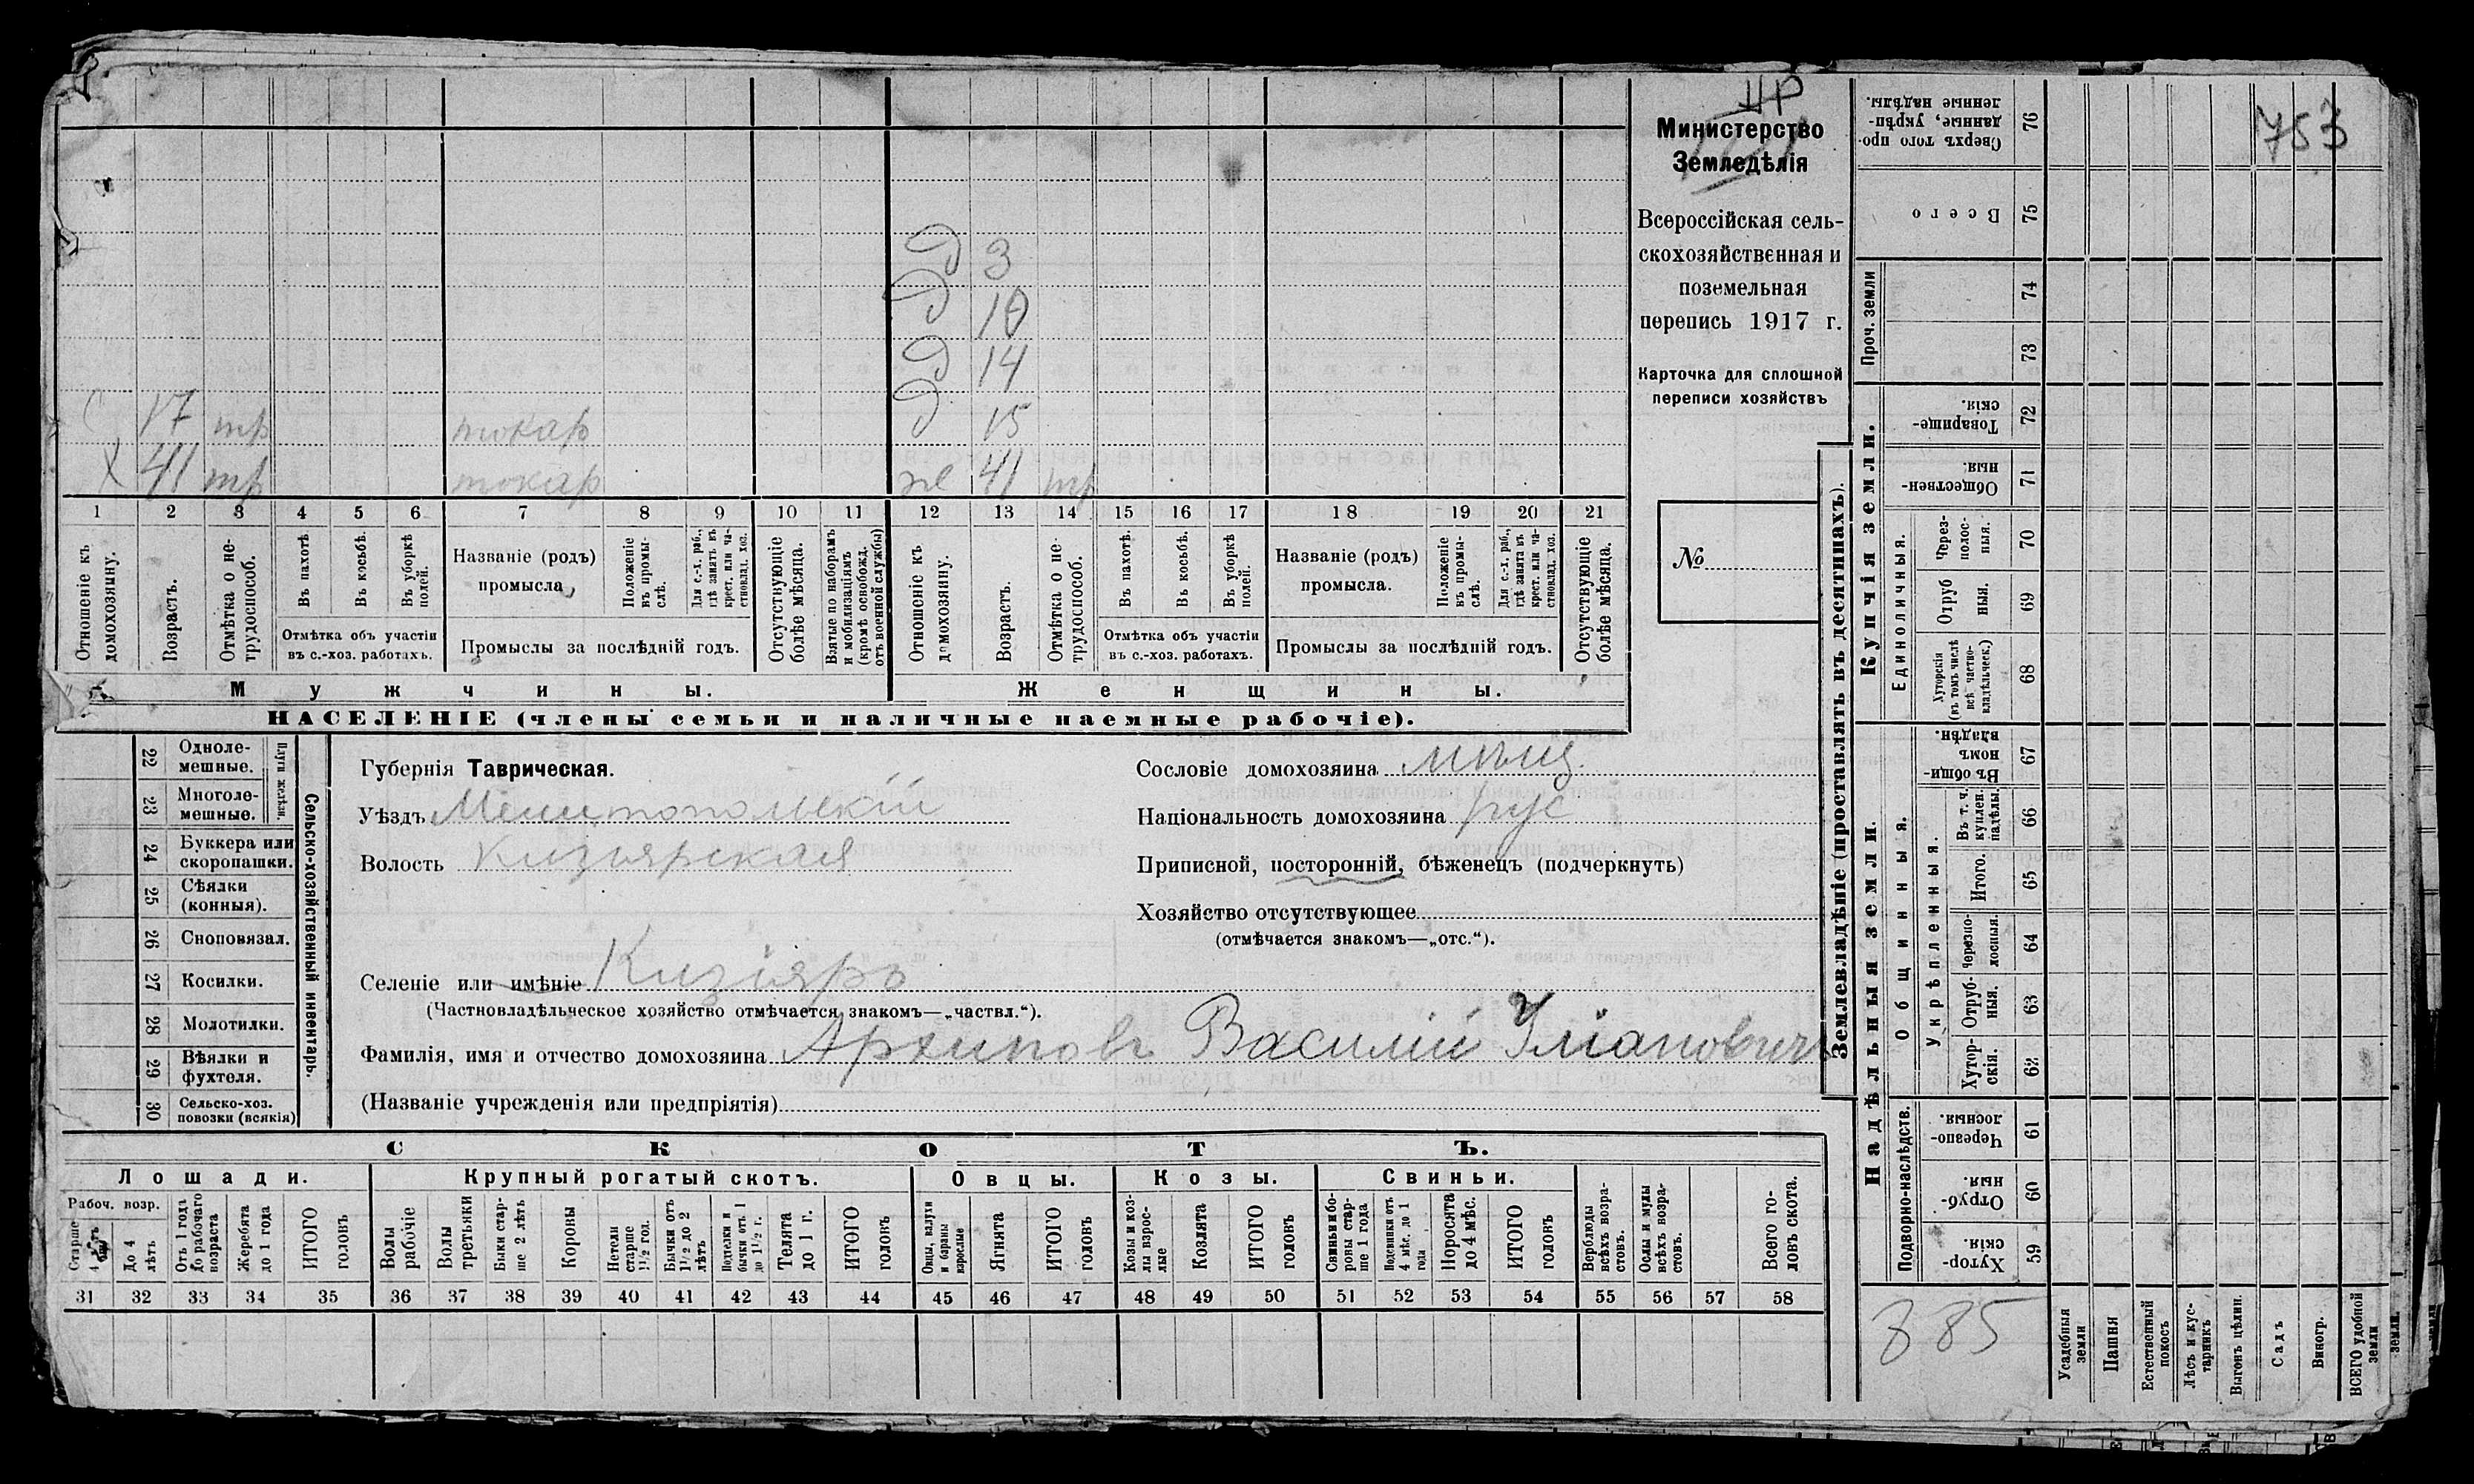 753
ЦР
Министерство
Земледѣлія
Всероссійская сель-
скохозяйственная и
поземельная
перепись 1917 г.
Карточка для сплошной
переписи хозяйствъ
№
Д 3
Д 10
Д 14
С 17 тр токар Д 15
Х 41 тр токар же 41 тр
1 2 3 4 5 6 7 8 9 10 11 12 13 14 15 16 17 18 19 20 21
Отношеніе къ домохозяину.
Возрастъ.
Отмѣтка о не-трудоспособ.
Въ пахотѣ
Въ косьбѣ.
Въ уборкѣ полей.
Отмѣтка объ участіи
въ с.-хоз. работахъ.
Названіе (родъ)
промысла
Положеніе въ промы-слѣ.
Для с.-х. раб., гдѣ занятъ въ крест. или ча-стновлад. хоз.
Промыслы за послѣдній годъ.
Отсутствующіе болѣе мѣсяца.
Взятые по наборамъ и мобилизаціямъ (кромѣ освобожд. отъ военной службы)
Отношеніе къ домохозяину.
Возрастъ.
Отмѣтка о не-трудоспособ.
Въ пахотѣ.
Въ косьбѣ.
Въ уборкѣ полей.
Отмѣтка объ участіи
въ с.-хоз. работахъ.
Названіе (родъ)
промысла.
Положеніе въ промы-слѣ.
Для с.-х. раб., гдѣ занята въ крест. или ча-стновлад. хоз.
Промыслы за послѣдній годъ.
Отсутствующіе болѣе мѣсяца.
Мужчины. Женщины.
НАСЕЛЕНІЕ (члены семьи и наличные наемные рабочіе).
22 Одноле-мешные.
23 Многоле-мешные.
Плуги желѣзн.
24 Буккера или скоропашки.
25 Сѣялки (конныя).
26 Сноповязал.
27 Косилки.
28 Молотилки.
29 Вѣялки и фухтеля.
30 Сельско-хоз. повозки (всякія)
Сельско-хозяйственный инвентарь.
Губернія Таврическая.
Уѣздъ Мелитопольскій
Волость Кизіярская
Сословіе домохозяина мѣщ.
Національность домохозяина рус
Приписной, посторонній, бѣженецъ (подчеркнуть)
Хозяйство отсутствующее
(отмѣчается знакомъ—„отс.“).
Селеніе или имѣніе Кизіяръ
(Частновладѣльческое хозяйство отмѣчается знакомъ—„частвл.“).
Фамилія, имя и отчество домохозяина Архиповъ Василій Улановичъ
(Названіе учрежденія или предпріятія)
СКОТЪ.
Лошади. Крупный рогатый скотъ. Овцы. Козы. Свиньи.
Рабоч. возр.
Старше 4 лѣтъ
До 4 лѣтъ
Отъ 1 года до рабочаго возраста
Жеребята до 1 года
ИТОГО головъ
Волы рабочіе
Волы третьяки
Быки стар-ше 2 лѣтъ
Коровы
Нетели старше 1½ год.
Бычки отъ 1½ до 2 лѣтъ
Нетелки и бычки отъ 1 до 1½ г.
Телята до 1 г.
ИТОГО головъ
Овцы, валухи и бараны взрослые
Ягнята
ИТОГО головъ
Козы и коз-лы взрос-лые
Козлята
ИТОГО головъ
Свиньи и бо-ровы стар-ше 1 года
Подсвинки отъ 4 мѣс. до 1 года
Поросята до 4 мѣс.
ИТОГО головъ
Верблюды всѣхъ возра-стовъ.
Ослы и мулы всѣхъ возра-стовъ.
Всего го-ловъ скота.
31 32 33 34 35 36 37 38 39 40 41 42 43 44 45 46 47 48 49 50 51 52 53 54 55 56 57 58
Землевладѣніе (проставлять въ десятинахъ).
Надѣльныя земли.
Подворно-наслѣдств.
59 Хутор-скія.
60 Отруб-ныя.
61 Черезпо-лосныя.
Общинныя.
Укрѣпленныя.
62 Хутор-скія.
63 Отруб-ныя.
64 Черезпо-лосныя.
65 Итого.
66 Въ т. ч. куплен. надѣлы.
67 Въ общи-номъ владѣн.
Купчія земли.
Единоличныя.
68 Хуторскія (въ томъ числѣ всѣ частно-владѣльческ.)
69 Отруб ныя.
70 Через-полос-ныя.
71 Обществен-ныя.
72 Товарище-скія.
Проч. земли
73
74
75 Всего
76 Сверхъ того про-данные, укрѣп-ленные надѣлы.
885
Усадебныя земли
Пашня
Естественный покосъ
Лѣсъ и кус-тарникъ
Выгонъ цѣлин.
Садъ
Виногр.
ВСЕГО удобной земли